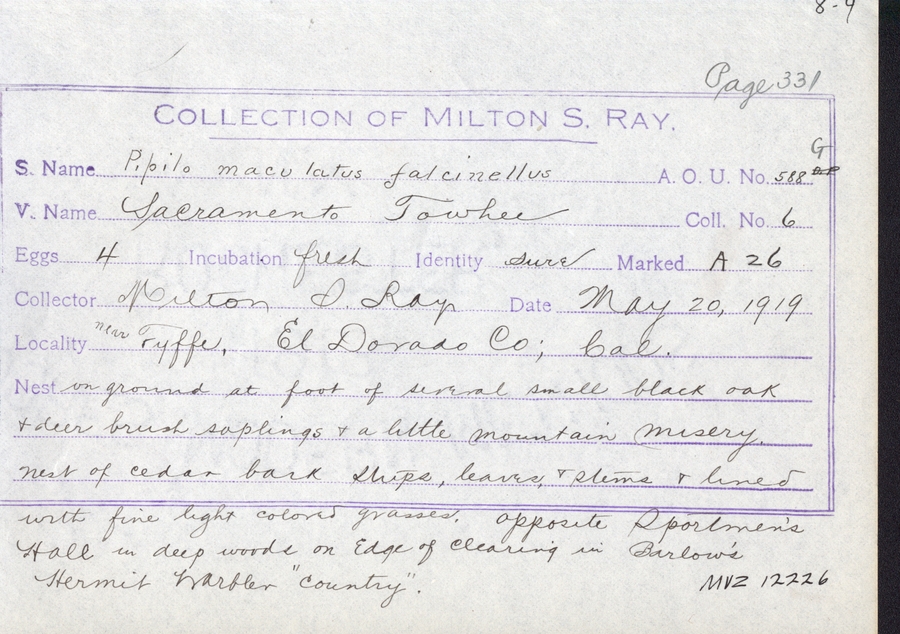 8-9
Page 331
COLLECTION OF MILTON S. RAY.
S. Name Pipilo maculatus falcinellus A. O. U. No. 588 G
V. Name Sacramento Towhee Coll. No. 6
Eggs 4 Incubation fresh Identity sure Marked A 26
Collector Milton S. Ray Date May 20, 1919
Locality near Fyffe, El Dorado Co; Cal.
Nest on ground at foot of several small black oak
& deer brush saplings & a little mountain misery.
nest of cedar bark strips, leaves, & stems & lined
with fine light colored grasses. opposite Sportmen's
Hall in deep woods on Edge of clearing in Barlow's
Hermit Warbler "country".
MVZ 12226